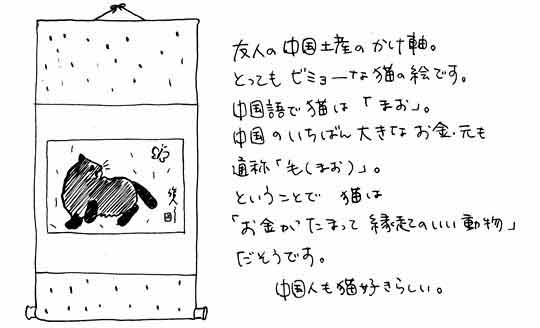 友人の中国土産のかけ軸。
とってもビミョーな猫の絵です。
中国語で猫は「まお」。
中国のいちばん大きなお金・元も
通称「毛(まお)」。
ということで 猫は
「お金がたまって 縁起のいい動物」
だそうです。
中国人も猫好きらしい。